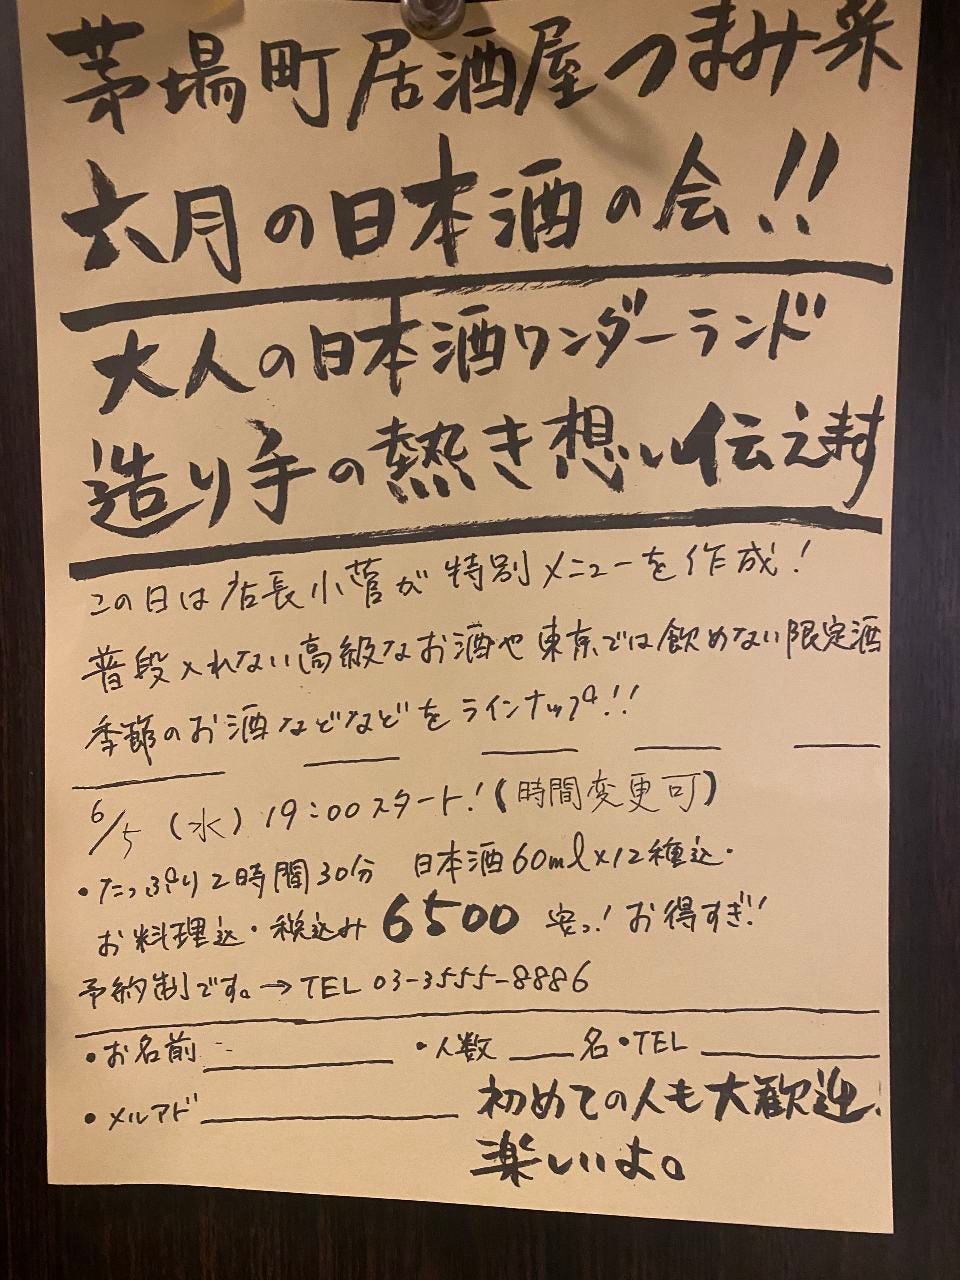 茅場町居酒屋つまみ菜
六月の日本酒の会!!
大人の日本酒ワンダーランド
造り手の熱き想い伝えます
この日は店長小菅が特別メニューを作成!
普段入れない高級なお酒や東京では飲めない限定酒
季節のお酒などなどをラインナップ!!
6/5(水)19:00スタート!(時間変更可)
・たっぷり2時間30分 日本酒60ml×12種込・
お料理込・税込み6500 安っ!お得すぎ!
予約制です。→TEL 03-3555-8886
・お名前 ・人数 名・TEL
・メルアド 初めての人も大歓迎!
楽しいよ。